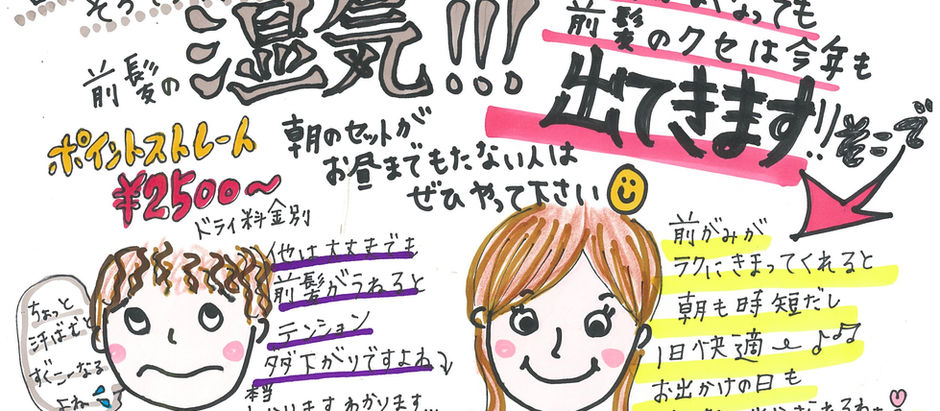 前髪の湿気!!!
なっても
前髪のクセは今年も
出てきます!!
そこで
ポイントストレート
¥2500〜
ドライ料金別
朝のセットが
お昼までもたない人は
ぜひやって下さい
ちょっと
汗ばむと
すぐこーなる
よね
他は大丈夫でも
前髪がうねると
テンション
タダ下がりですよね
本当
わかりますわかります…
前がみが
ラクにきまってくれると
朝も時短だし
1日快適〜♪♫
お出かけの日も